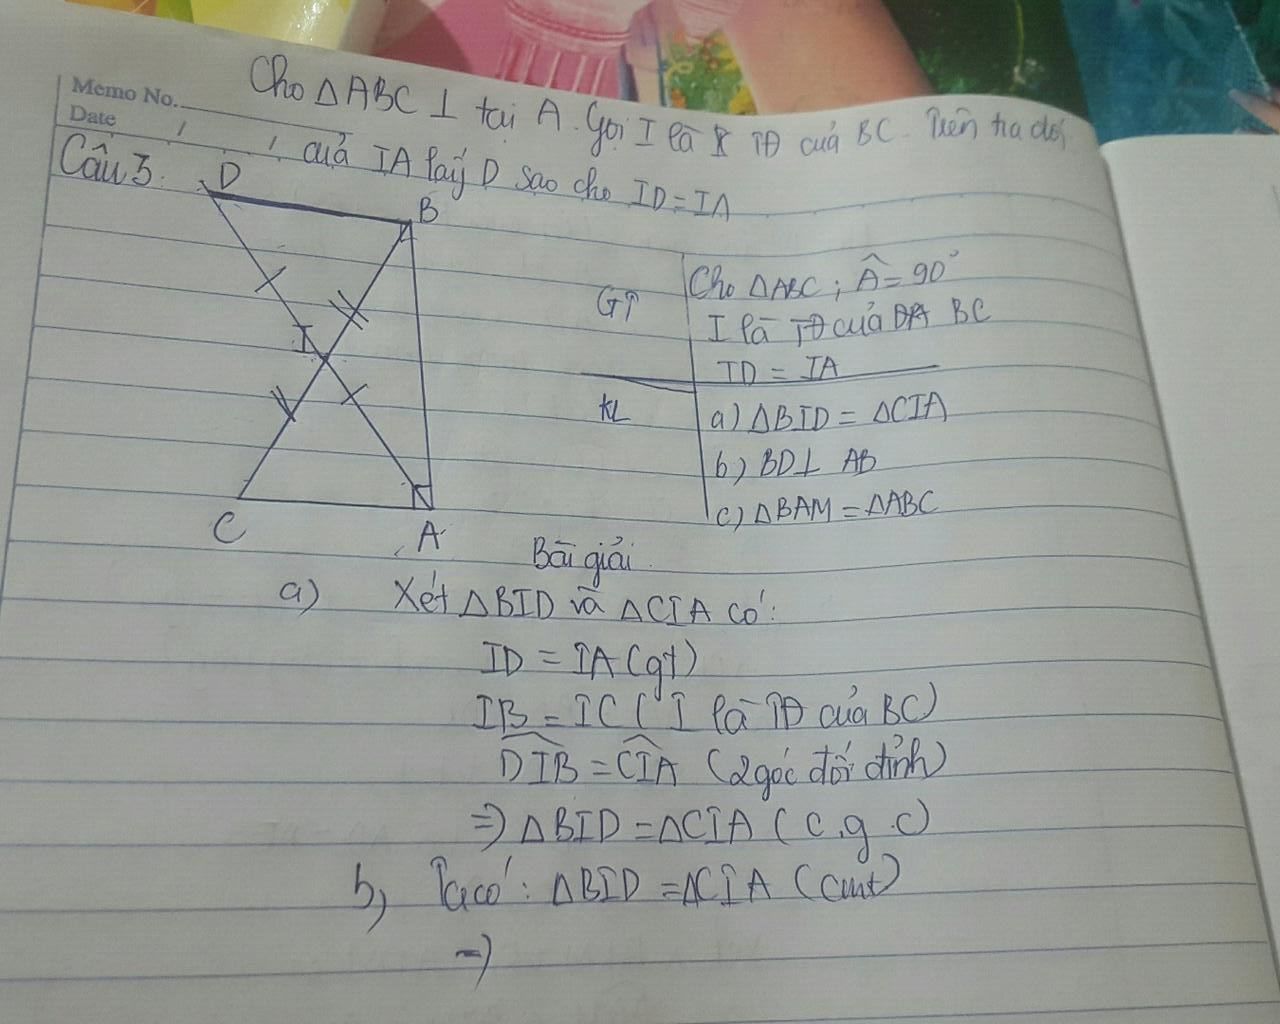 Memo No.
Date / /
Cho △ABC ⊥ tại A. Gọi I là TĐ của BC. Trên tia đối
của IA lấy D sao cho ID = IA
Câu 3.
D
B
I
C
A
GT
Cho △ABC ; Â = 90°
I là TĐ của BC
ID = IA
KL
a) △BID = △CIA
b) BD ⊥ AB
c) △BAM = △ABC
Bài giải
a) Xét △BID và △CIA có:
ID = IA (gt)
IB = IC ( I là TĐ của BC)
DIB = CIA (2 góc đối đỉnh)
=> △BID = △CIA ( c.g.c)
b, Ta có : △BID = △CIA (cmt)
=>